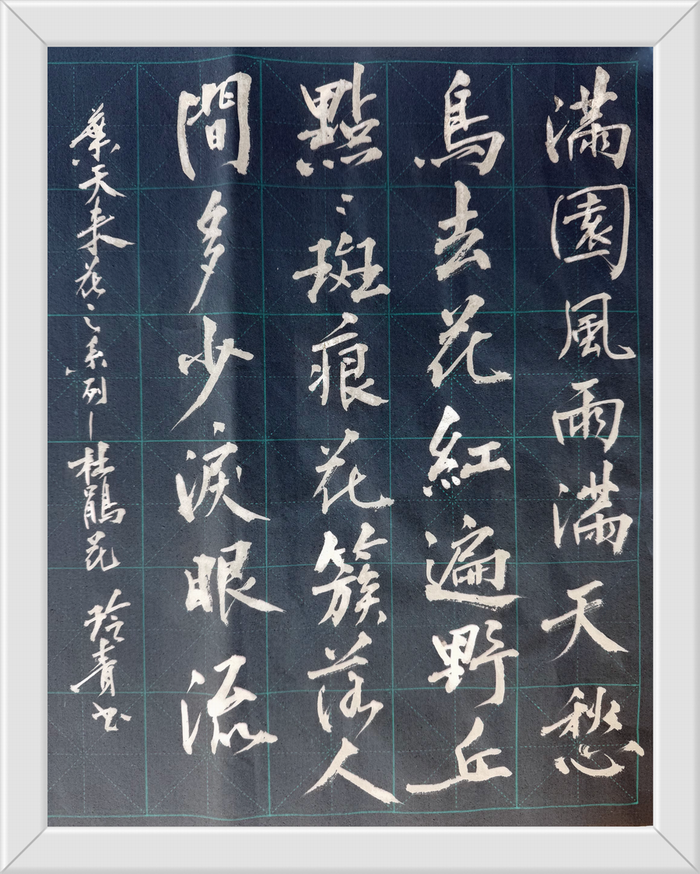 滿園風雨滿天愁
鳥去花紅遍野丘
點〻斑痕花簇落人
間多少淚眼流
葉天来花之系列—杜鵑花 玲青书